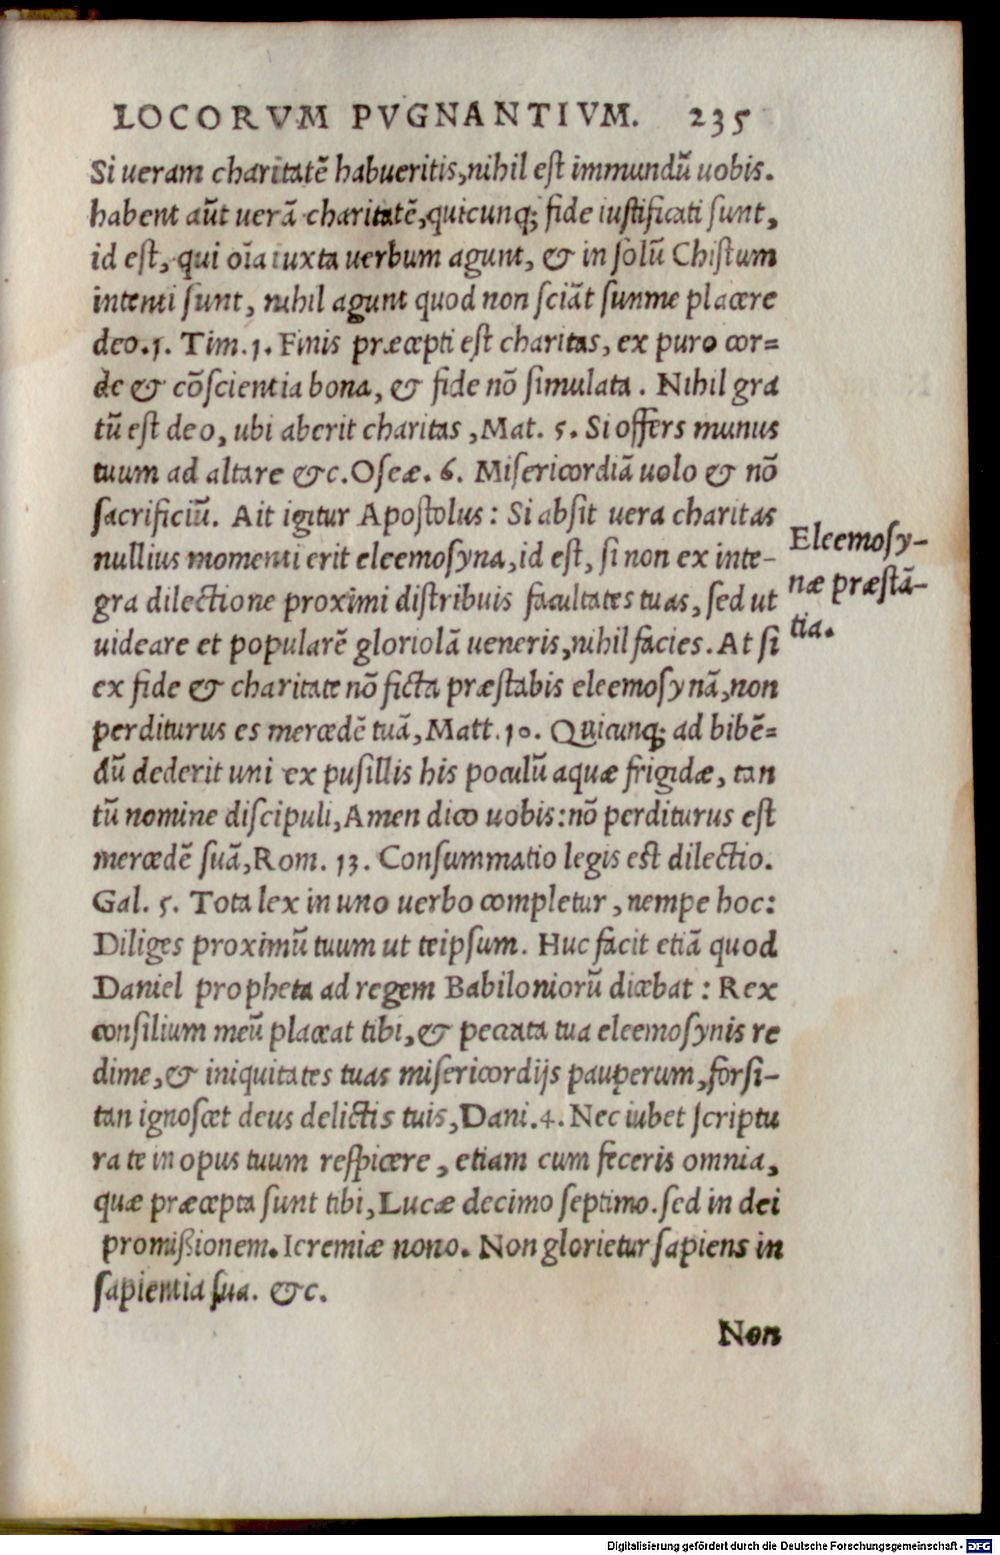 LOCORVM PVGNANTIVM. 235
Si ueram charitatē habueritis, nihil est immundū uobis.
habent aūt uerā charitatē, quicunq; fide iustificati sunt,
id est, qui oīa iuxta uerbum agunt, & in solū Chistum
intenti sunt, nihil agunt quod non sciāt summe placere
deo. 1. Tim. 1. Finis præcepti est charitas, ex puro cor=
de & cōscientia bona, & fide nō simulata. Nihil gra
tū est deo, ubi aberit charitas, Mat. 5. Si offers munus
tuum ad altare &c. Oseæ. 6. Misericordiā uolo & nō
sacrificiū. Ait igitur Apostolus: Si absit uera charitas
nullius momenti erit eleemosyna, id est, si non ex inte-
gra dilectione proximi distribuis facultates tuas, sed ut
uideare et popularē gloriolā ueneris, nihil facies. At si
ex fide & charitate nō ficta præstabis eleemosynā, non
perditurus es mercedē tuā, Matt. 10. Quicunq; ad bibē=
dū dederit uni ex pusillis his poculū aquæ frigidæ, tan
tū nomine discipuli, Amen dico uobis: nō perditurus est
mercedē suā, Rom. 13. Consummatio legis est dilectio.
Gal. 5. Tota lex in uno uerbo completur, nempe hoc:
Diliges proximū tuum ut teipsum. Huc facit etiā quod
Daniel propheta ad regem Babiloniorū dicebat: Rex
consilium meū placeat tibi, & peccata tua eleemosynis re
dime, & iniquitates tuas misericordijs pauperum, forsi-
tan ignoscet deus delictis tuis, Dani. 4. Nec iubet scriptu
ra te in opus tuum respicere, etiam cum feceris omnia,
quæ præcepta sunt tibi, Lucæ decimo septimo. sed in dei
promißionem. Ieremiæ nono. Non glorietur sapiens in
sapientia sua. &c.
Non
Eleemosy-
næ præstā-
tia.
Digitalisierung gefördert durch die Deutsche Forschungsgemeinschaft - DFG